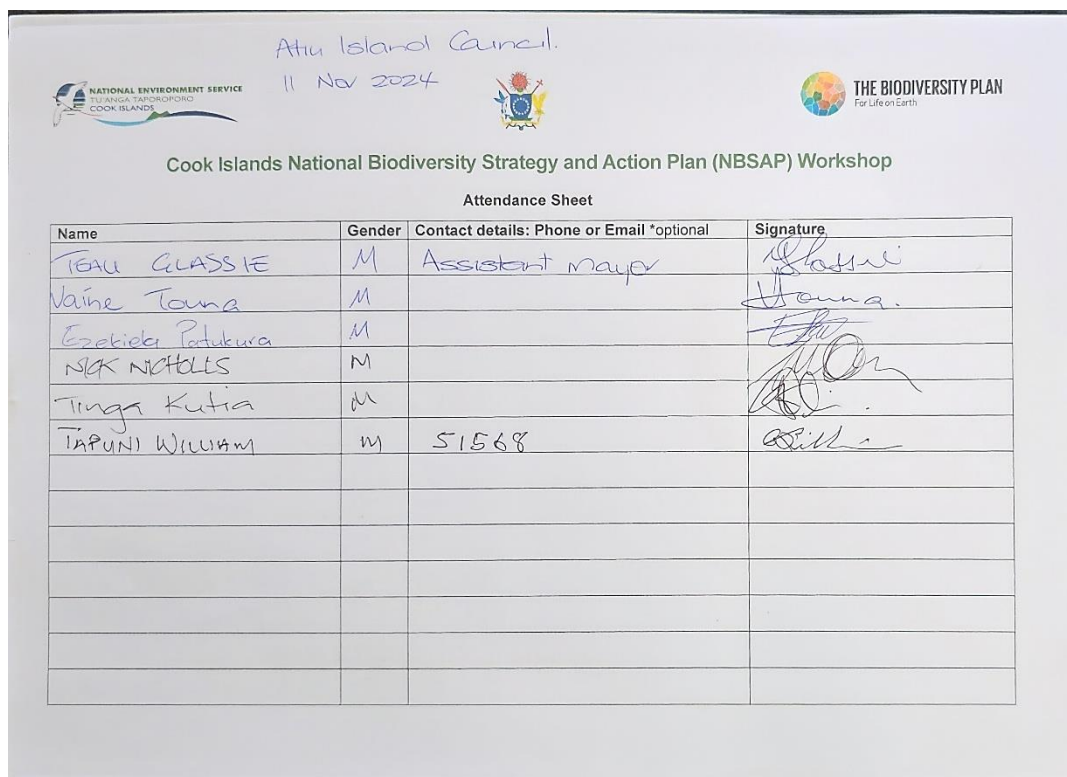 Atiu Island Council.
11 Nov 2024
NATIONAL ENVIRONMENT SERVICE
TU'ANGA TAPOROPORO
COOK ISLANDS
THE BIODIVERSITY PLAN
For Life on Earth
Cook Islands National Biodiversity Strategy and Action Plan (NBSAP) Workshop
Attendance Sheet
Name Gender Contact details: Phone or Email *optional Signature
TEAU GLASSIE M Assistant Mayor
Vaine Touna M
Ezekiela Patukura M
NICK NICHOLLS M
Tinga Kutia M
TAPUNI WILLIAM M 51568